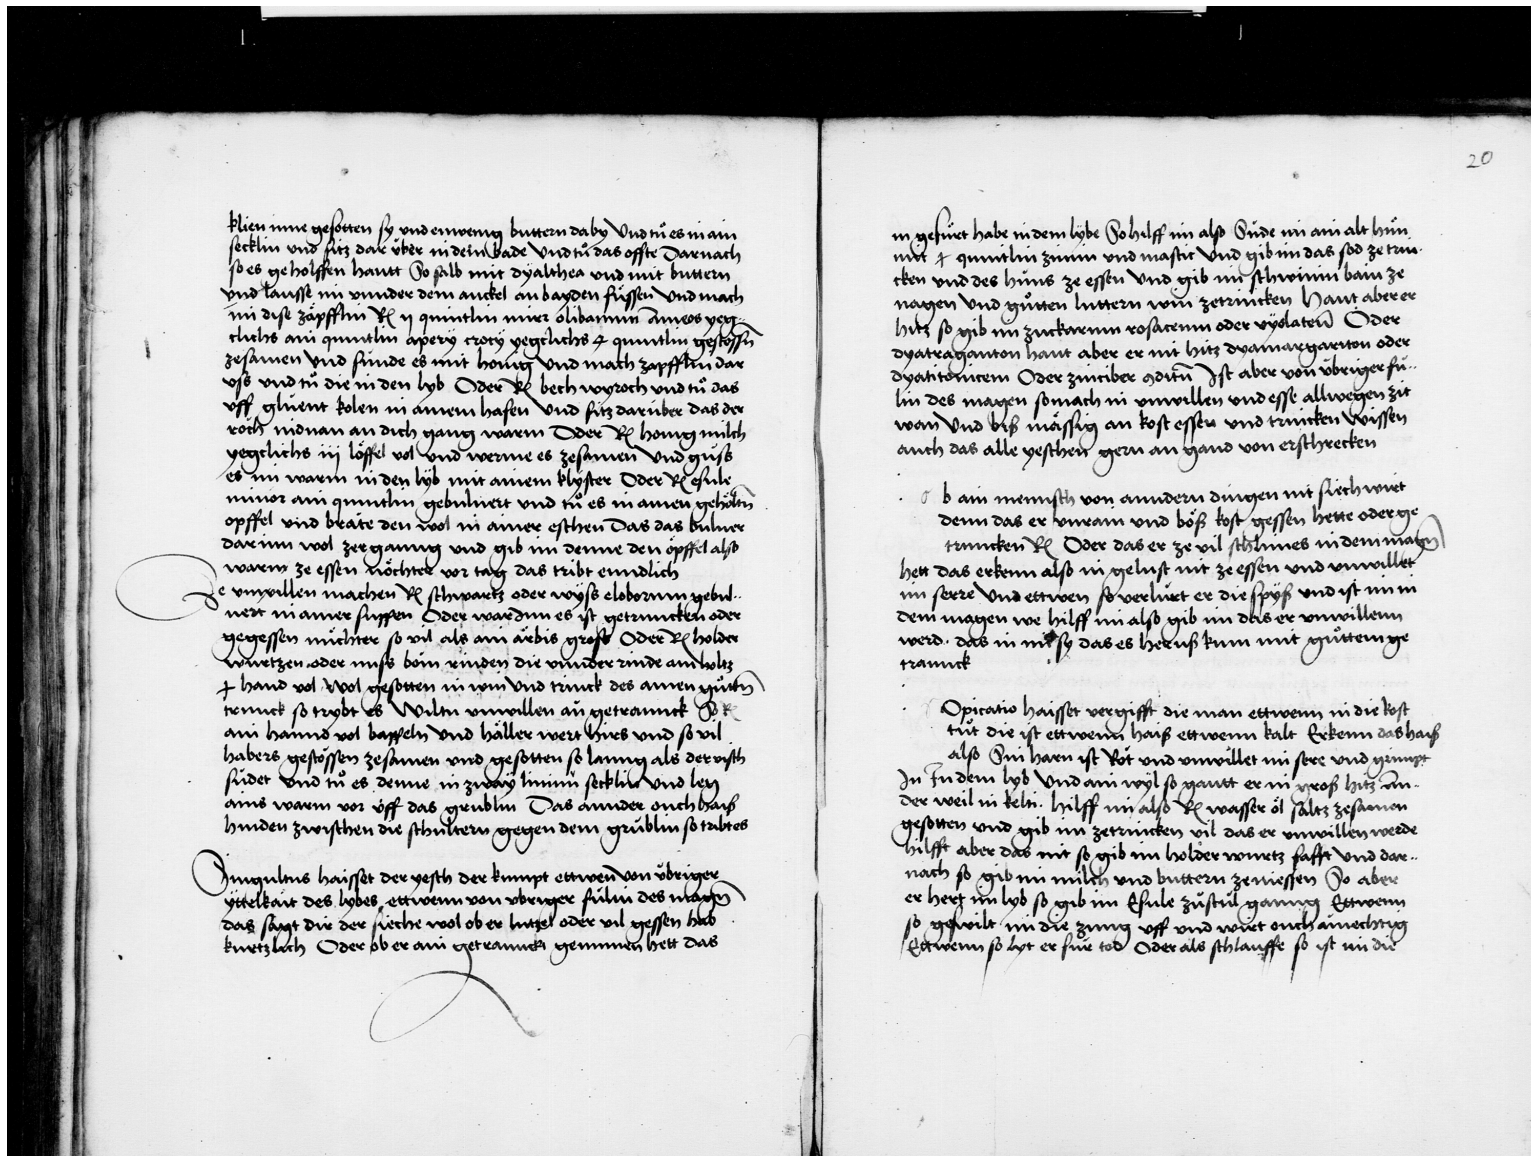 klien inne gesotten sy vnd ein wenig buttern daby Vnd tů es in ain
secklin vnd sitz dar über in dem bade Vnd tů das offte Darnach
so es geholffen hautt So salb mit dyalthea vnd mit buttern
vnd lausse im vnnder dem anckel an bayden füssen Vnd mach
im dise zäpfflin R ij quintlin mirr olibanum Ameos yeg-
clichs ain quintlin apery croty yegclichs quintlin gestossn
zesamen Vnd sünde es mit honig Vnd mach zapfflin dar
vss vnd tů die in den lyb Oder R bech wyroch vnd tů das
vff glüent kolen in ainem hafen Vnd sitz darüber das der
röch nidnan an dich gang warm Oder R honig milch
yegclichs iij löffel vol vnd werme es zesamen Vnd guss
es im warm in den lyb mit ainem klyster Oder R esule
minor ain quintlin gebuluert vnd tů es in ainen gehöltn
opffel vnd bräte den wol in ainer eschen Das das buluer
dar inn wol zerganng vnd gib im denne den öpffel also
warm ze essen nöchter vor tag das tribt enndlich
Ze vnwillen machen R schwartz oder wyss eloborum gebul-
uert in ainer suppen Oder wardun es ist getruncken oder
gegessen nüchter so vil als ain ärbis gross Oder R holder
wurtzen oder nuss böm rinden die vnnder rinde am holtz
hand vol Wol gesotten in win Vnd trinck des ainen gůttn
trunck so trybt es Wiltu vnwillen än getrannck So R
ain hannd vol bappeln Vnd häller wert hirs vnd so vil
habers gestossen zesamen vnd gesotten so lanng als der visch
südet Vnd tů es denne in zway lininü secklin Vnd leg
ains warm vor vff das grüblin Das annder ouch haiß
hinden zwischen die schultern gegen dem grüblin so tribt es
Singultus haisset der yesch der kumpt ettwenn von übriger
yttelkait des lybes ettwenn von übriger fülin des magn
das sagt dir der sieche wol ob er lutzel oder vil gessen hab
kurtzlich Oder ob er ain getrannck genumen hett das
20
in gefürt habe in dem lybe So hilff im also Süde im ain alt hůn
mit quintlin zinim vnd mastic Vnd gib im das sod ze trin-
cken vnd des hůns ze essen Vnd gib im schwinin bain ze
nagen Vnd gůtten luttern win zetrincken Haut aber er
hitz so gib im zuckarum rosaceum oder vyolatum Oder
dyatraganton haut aber er nit hitz dyamargariton oder
dyatitonicem Oder zinciber 9ditum Ist aber von übriger fü-
lin des magen so mach in vnwillen vnd esse allwegen zit
wan Vnd biß mässig an kost essen vnd trincken Wissen
auch das alle yeschen gern an gand von erschrecken
Ob ain mennsch von anndern dingen nit siech wirt
denn das er vnrain vnd böß kost gessen hette oder ge
truncken R Oder das er ze vil schlimes in dem magn
hett das erkenn also in gelust nit ze essen vnd vnwillet
im serre Vnd ettwen so verlürt er die spyß vnd ist im in
dem magen we hilff im also gib im das er vnwillenn
werd das in nit sy das es heruß kum mit gůttem ge
trannck
Opicatio haisset vergifft die man ettwenn in die kost
tůt die ist ettwenn haiß ettwenn kalt Erkenn das haiß
also Sin harn ist Röt vnd vnwillet im sere vnd grimpt
In In dem lyb Vnd ain wyl so gautt er in groß hitz An-
der weil in keltin hilff im also R wasser öl saltz zesamen
gesotten vnd gib im zetrincken vil das er vnwillen werde
hilfft aber das nit so gib im holder wurtz safft Vnd dar-
nach so gib im milch vnd buttern ze niessen So aber
er hert im lyb so gib im Esule zů stůl ganng Ettwenn
so geswilt im die zung vff vnd wirt ouch ämechtig
Ettwenn so lyt er für tod Oder als schlauffe so ist im die